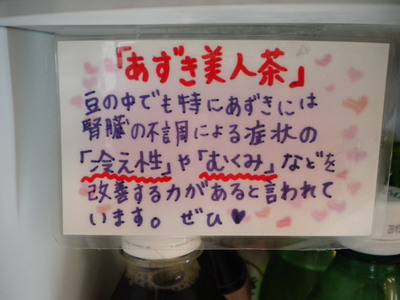 「あずき美人茶」
豆の中でも特にあずきには
腎臓の不調による症状の
「冷え性」や「むくみ」などを
改善する力があると言われて
います。ぜひ♥